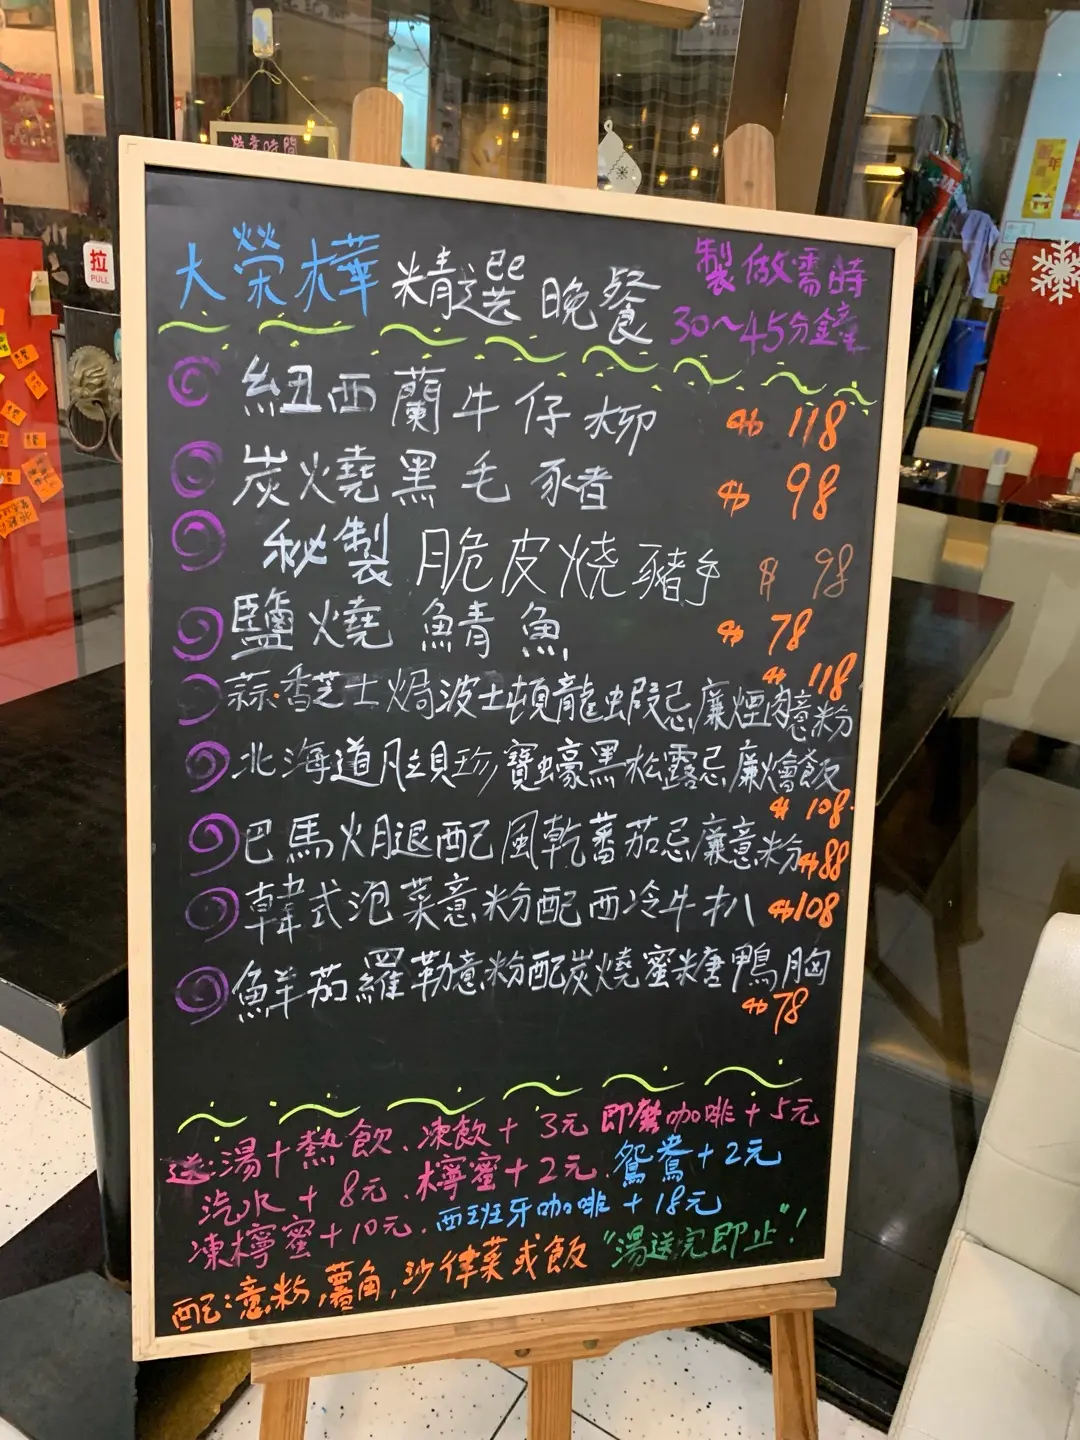 拉
PULL
大榮樺 精選晚餐 製做需時
30～45分鐘
紐西蘭牛仔柳 $118
炭燒黑毛豬 $98
秘製脆皮燒豬手 $98
鹽燒鯖魚 $78
蒜香芝士焗波士頓龍蝦忌廉煙肉意粉 $118
北海道帆立貝珍寶蠔黑松露忌廉燴飯
$108
巴馬火腿配風乾蕃茄忌廉意粉 $88
韓式泡菜意粉配西冷牛扒 $108
鮮茄羅勒意粉配炭燒蜜糖鴨胸
$78
送:湯+熱飲、凍飲+3元 即磨咖啡+5元
汽水+8元.檸蜜+2元.鴛鴦+2元
凍檸蜜+10元.西班牙咖啡+18元
配:意粉,薯角,沙律菜或飯 "湯送完即止"!